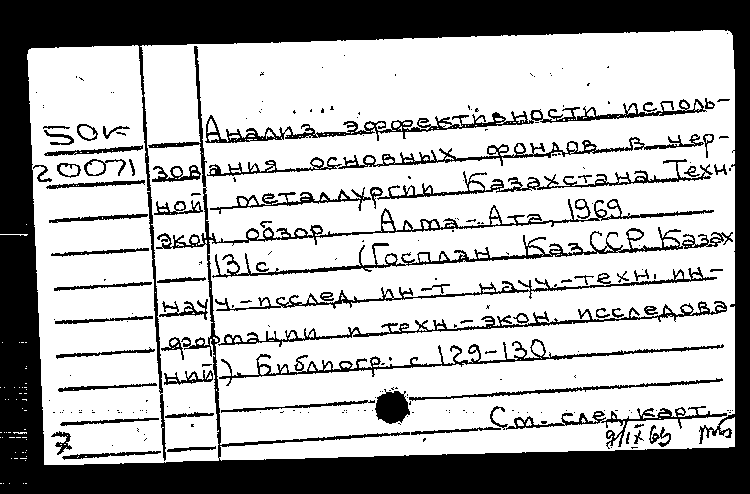 Анализ эффективности исполь-
50к
20071 зования основных фондов в чер-
ной металлургии Казахстана. Техн.-
экон. обзор. Алма-Ата, 1969.
131с. (Госплан КазССР. Казах
науч.-исслед. ин-т науч.-техн. ин-
формации и техн.-экон. исследова-
ний). Библиогр.: с 129-130.
См. след. карт.
7